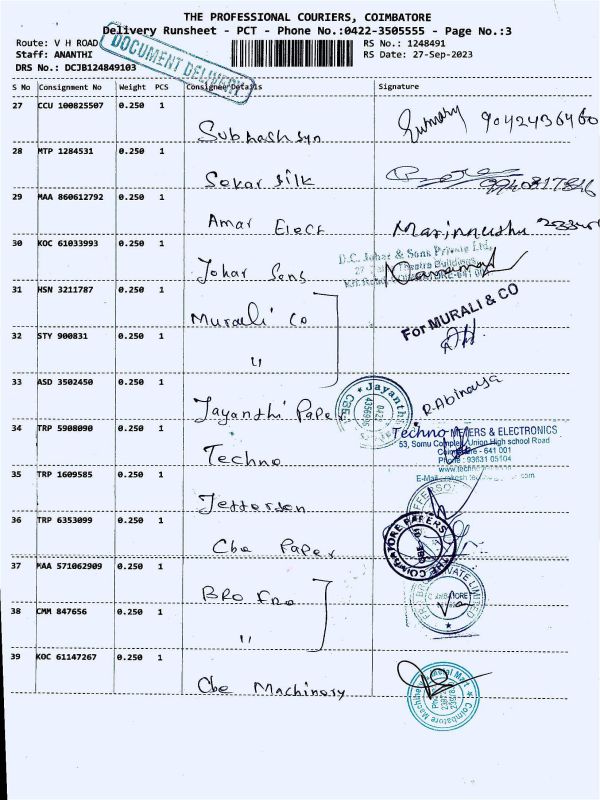 THE PROFESSIONAL COURIERS, COIMBATORE
Delivery Runsheet - PCT - Phone No.:0422-3505555 - Page No.:3
Route: V H ROAD
DOCUMENT DELIVERY
RS No.: 1248491
Staff: ANANTHI
RS Date: 27-Sep-2023
DRS No.: DCJB124849103
S No Consignment No Weight PCS Consignee Details Signature
27 CCU 100825507 0.250 1
28 MTP 1284531 0.250 1
Sekar Silk
29 MAA 860612792 0.250 1
Amar Elect
30 KOC 61033993 0.250 1
Johar Sons
D.C. Johar & Sons Private Ltd.
31 HSN 3211787 0.250 1
Murali Co
For MURALI & CO
32 STY 900831 0.250 1
"
33 ASD 3502450 0.250 1
Jayanthi Paper
R. Abinaya
34 TRP 5908090 0.250 1
Techno
Techno METERS & ELECTRONICS
53, Somu Complex, Union High school Road
Coimbatore - 641 001
Phone : 93631 05104
35 TRP 1609585 0.250 1
Jefferson
36 TRP 6353099 0.250 1
Cbe Paper
THE COIMBATORE PAPERS
37 MAA 571062909 0.250 1
38 CMM 847656 0.250 1
"
39 KOC 61147267 0.250 1
Cbe Machinery